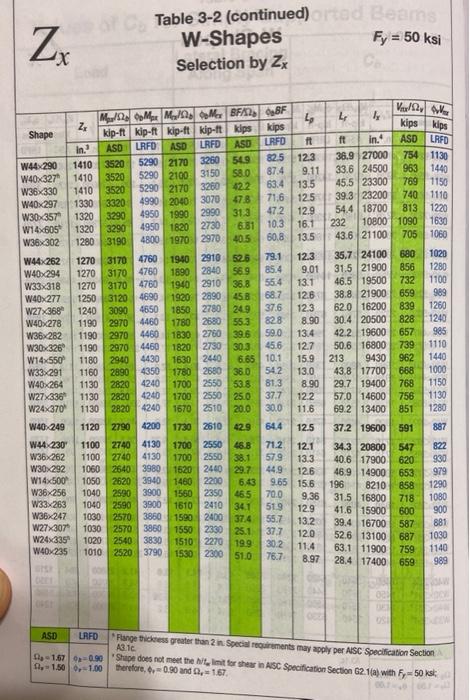 Table 3-2 (continued)
W-Shapes
Selection by Zx
Zx
Fy = 50 ksi
Shape Zx Mpx/Ωb ϕbMpx Mrx/Ωb ϕbMrx BF/Ωb ϕbBF Lp Lr Ix Vnx/Ωv ϕvVnx
kip-ft kip-ft kip-ft kip-ft kips kips kips kips
in.³ ASD LRFD ASD LRFD ASD LRFD ft ft in.⁴ ASD LRFD
W44×290 1410 3520 5290 2170 3260 54.9 82.5 12.3 36.9 27000 754 1130
W40×327ʰ 1410 3520 5290 2100 3150 58.0 87.4 9.11 33.6 24500 963 1440
W36×330 1410 3520 5290 2170 3260 42.2 63.4 13.5 45.5 23300 769 1150
W40×297 1330 3320 4990 2040 3070 47.8 71.6 12.5 39.3 23200 740 1110
W30×357ʰ 1320 3290 4950 1990 2990 31.3 47.2 12.9 54.4 18700 813 1220
W14×605ʰ 1320 3290 4950 1820 2730 6.81 10.3 16.1 232 10800 1090 1630
W36×302 1280 3190 4800 1970 2970 40.5 60.8 13.5 43.6 21100 705 1060
W44×262 1270 3170 4760 1940 2910 52.6 79.1 12.3 35.7 24100 680 1020
W40×294 1270 3170 4760 1890 2840 56.9 85.4 9.01 31.5 21900 856 1280
W33×318 1270 3170 4760 1940 2910 36.8 55.4 13.1 46.5 19500 732 1100
W40×277 1250 3120 4690 1920 2890 45.8 68.7 12.6 38.8 21900 659 989
W27×368ʰ 1240 3090 4650 1850 2780 24.9 37.6 12.3 62.0 16200 839 1260
W40×278 1190 2970 4460 1780 2680 55.3 82.8 8.90 30.4 20500 828 1240
W36×282 1190 2970 4460 1830 2760 39.6 59.0 13.4 42.2 19600 657 985
W30×326ʰ 1190 2970 4460 1820 2730 30.3 45.6 12.7 50.6 16800 739 1110
W14×550ʰ 1180 2940 4430 1630 2440 6.65 10.1 15.9 213 9430 962 1440
W33×291 1160 2890 4350 1780 2680 36.0 54.2 13.0 43.8 17700 668 1000
W40×264 1130 2820 4240 1700 2550 53.8 81.3 8.90 29.7 19400 768 1150
W27×336ʰ 1130 2820 4240 1700 2550 25.0 37.7 12.2 57.0 14600 756 1130
W24×370ʰ 1130 2820 4240 1670 2510 20.0 30.0 11.6 69.2 13400 851 1280
W40×249 1120 2790 4200 1730 2610 42.9 64.4 12.5 37.2 19600 591 887
W44×230ᵛ 1100 2740 4130 1700 2550 46.8 71.2 12.1 34.3 20800 547 822
W36×262 1100 2740 4130 1700 2550 38.1 57.9 13.3 40.6 17900 620 930
W30×292 1060 2640 3980 1620 2440 29.7 44.9 12.6 46.9 14900 653 979
W14×500ʰ 1050 2620 3940 1460 2200 6.43 9.65 15.6 196 8210 858 1290
W36×256 1040 2590 3900 1560 2350 46.5 70.0 9.36 31.5 16800 718 1080
W33×263 1040 2590 3900 1610 2410 34.1 51.9 12.9 41.6 15900 600 900
W36×247 1030 2570 3860 1590 2400 37.4 55.7 13.2 39.4 16700 587 881
W27×307ʰ 1030 2570 3860 1550 2330 25.1 37.7 12.0 52.6 13100 687 1030
W24×335ʰ 1020 2540 3830 1510 2270 19.9 30.2 11.4 63.1 11900 759 1140
W40×235 1010 2520 3790 1530 2300 51.0 76.7 8.97 28.4 17400 659 989
ASD LRFD
Ωb = 1.67 ϕb = 0.90
Ωv = 1.50 ϕv = 1.00
ʰ Flange thickness greater than 2 in. Special requirements may apply per AISC Specification Section
A3.1c.
ᵛ Shape does not meet the h/tw limit for shear in AISC Specification Section G2.1(a) with Fy = 50 ksi;
therefore, ϕv = 0.90 and Ωv = 1.67.